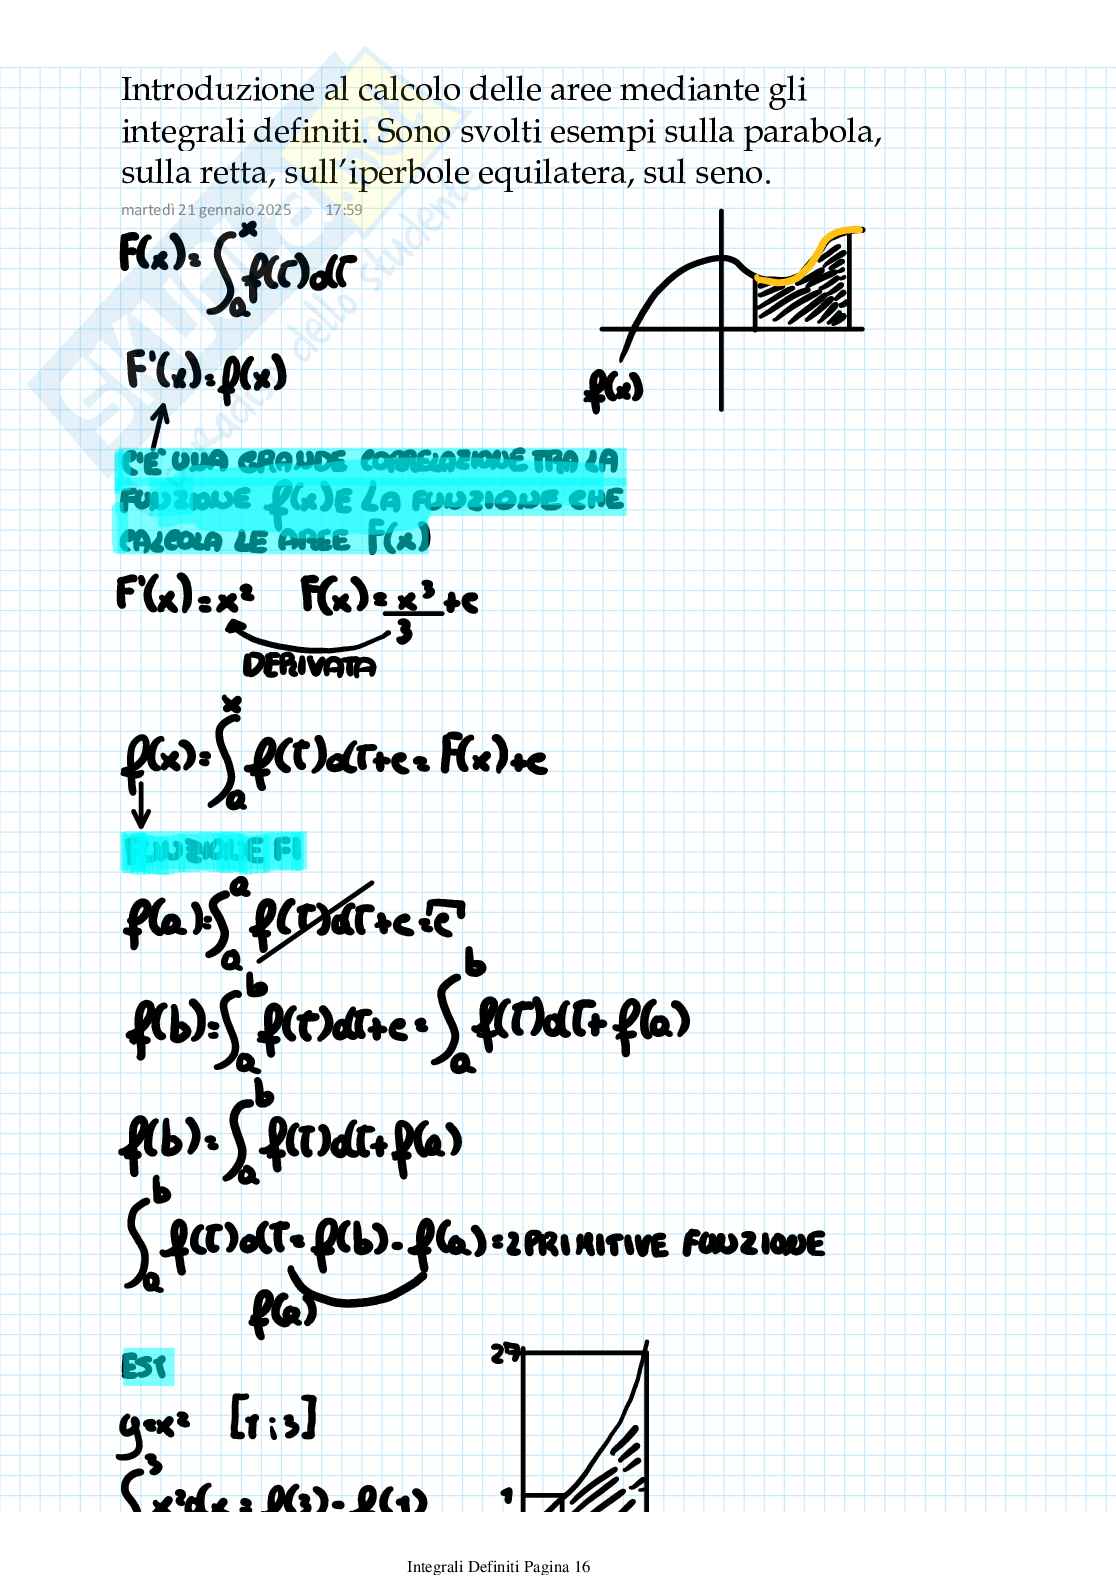 Introduzione al calcolo delle aree mediante gli
integrali definiti. Sono svolti esempi sulla parabola,
sulla retta, sull'iperbole equilatera, sul seno.
martedì 21 gennaio 2025 17:59
F(x)=∫ₐˣ f(t)dt
F'(x)=f(x)
f(x)
C'È UNA GRANDE CORRELAZIONE TRA LA
FUNZIONE f(x) E LA FUNZIONE CHE
CALCOLA LE AREE F(x)
F'(x)=x² F(x)=x³/3+c
DERIVATA
f(x)=∫ₐˣ f(t)dt+c=F(x)+c
FUNZIONE FI
f(a)=∫ₐᵃ f(t)dt+c=c
f(b)=∫ₐᵇ f(t)dt+c=∫ₐᵇ f(t)dt+f(a)
f(b)=∫ₐᵇ f(t)dt+f(a)
∫ₐᵇ f(t)dt=f(b)-f(a)=2 PRIMITIVE FUNZIONE
f(a)
ES1
27
y=x² [1;3]
1
∫³ x²dx=f(3)-f(1)
Integrali Definiti Pagina 16
SKUOLA.net
dello studente